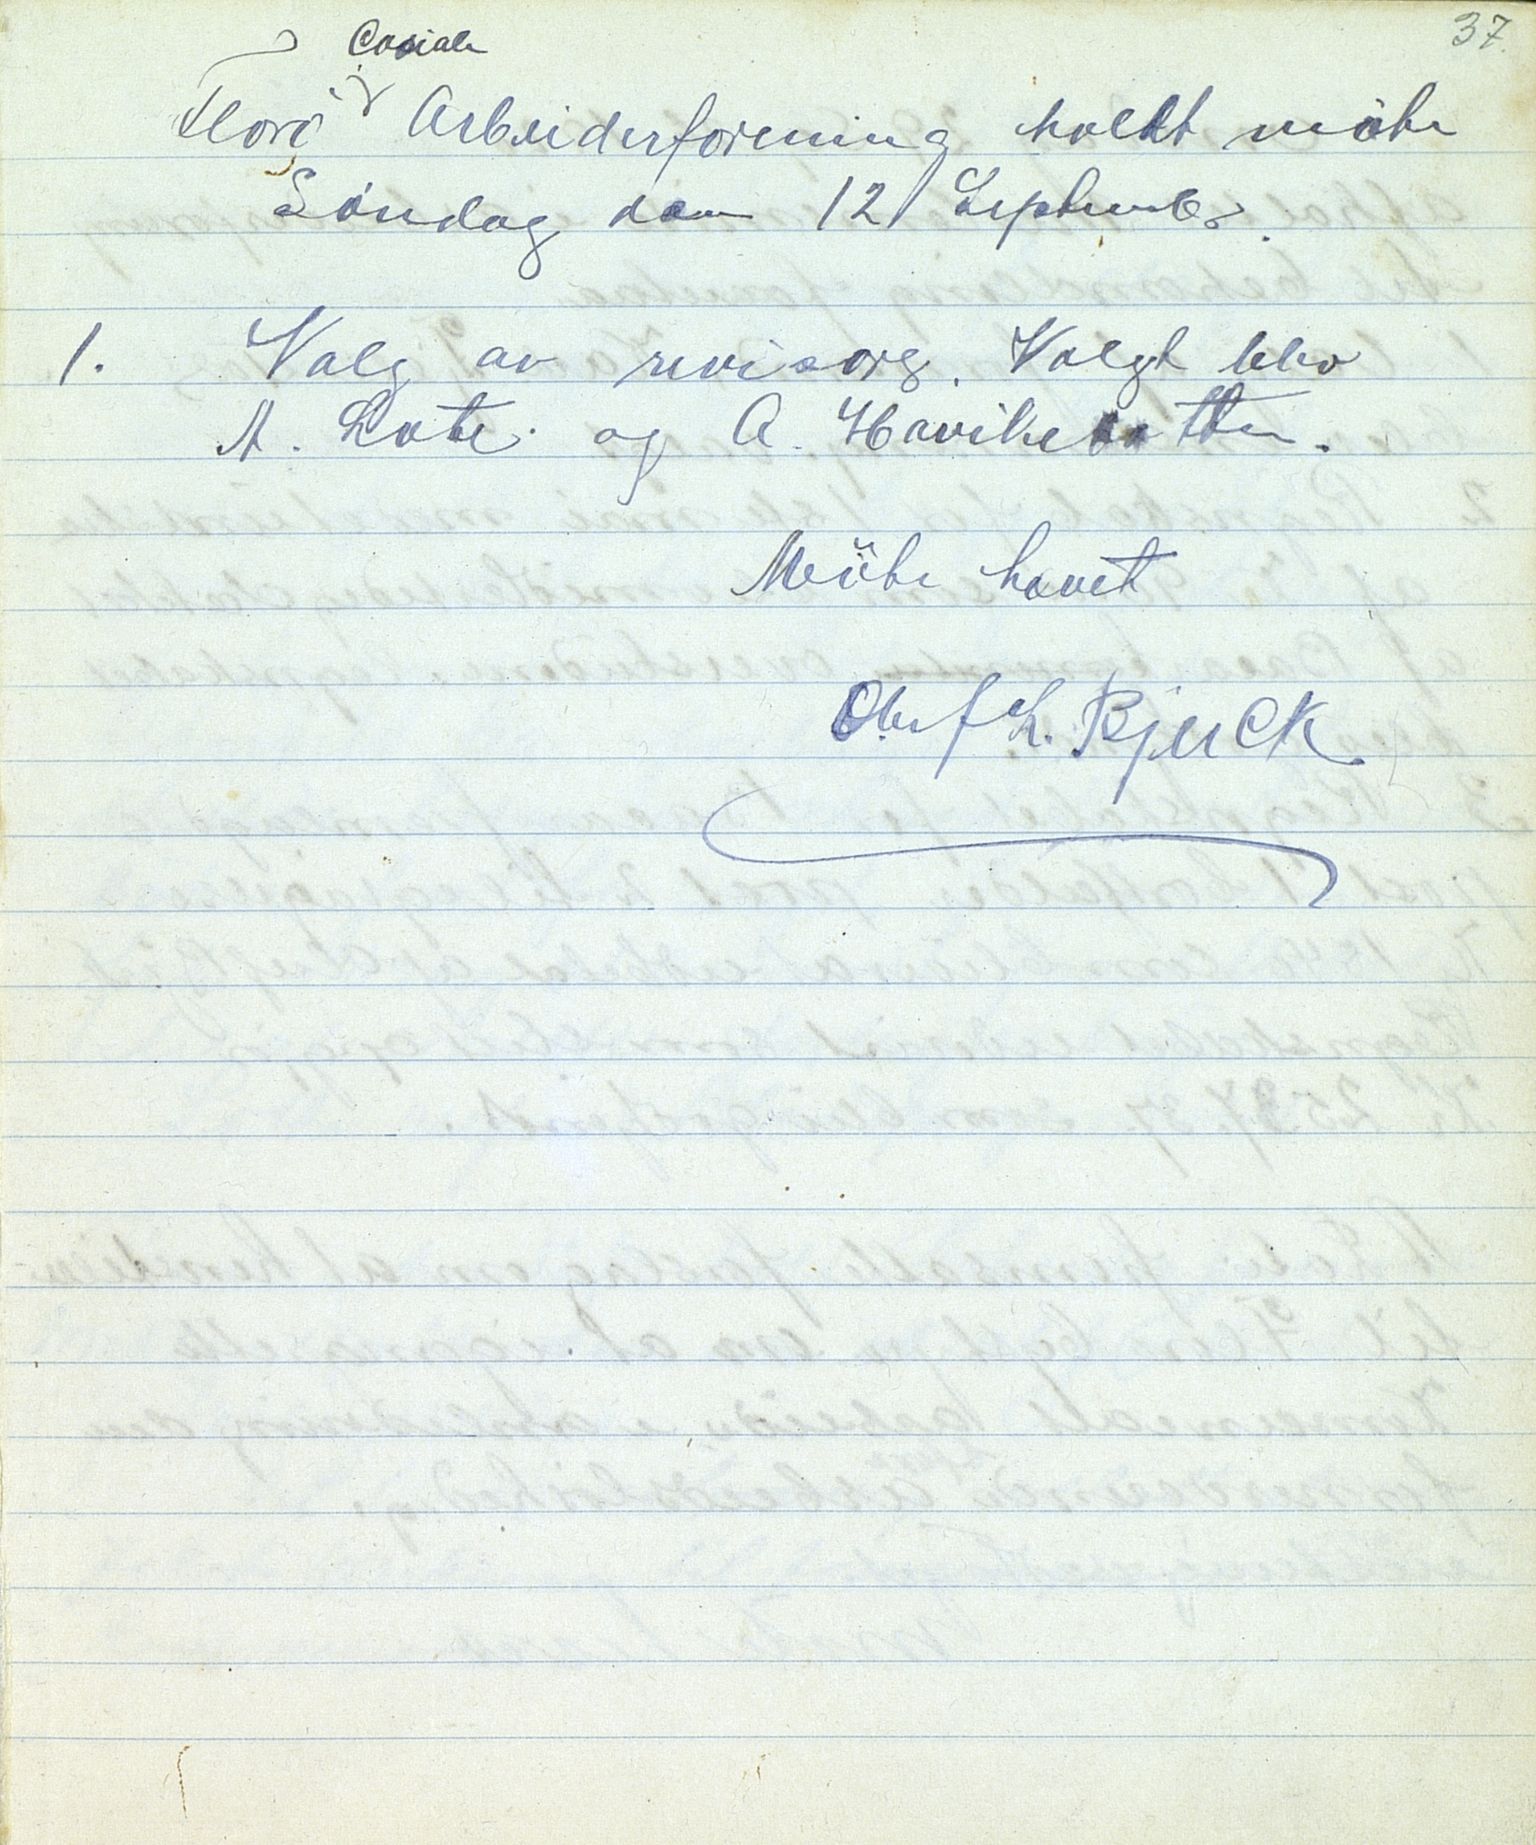 37.
Cosiale
Florö Arbeiderforening holdt möte
Söndag den 12 September.
1. Valg av revisorg. Valgt blev
A. Lote. og A. Havikbotten.
Möte havet
Oluf L. Bjerck